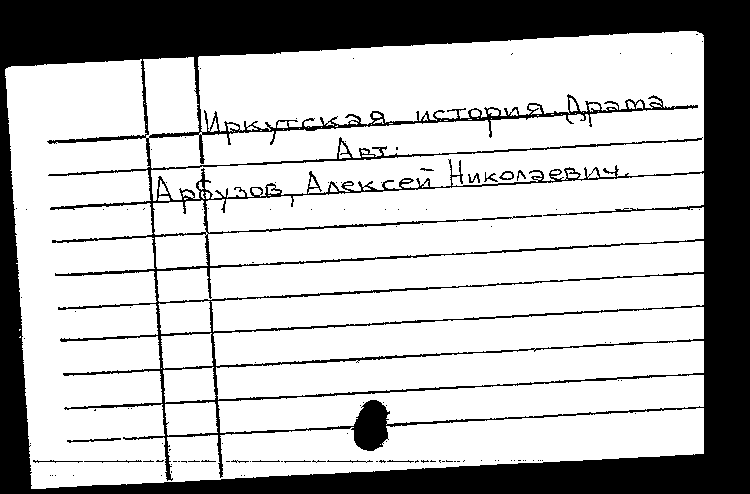 Иркутская история. Драма
Авт.:
Арбузов, Алексей Николаевич.